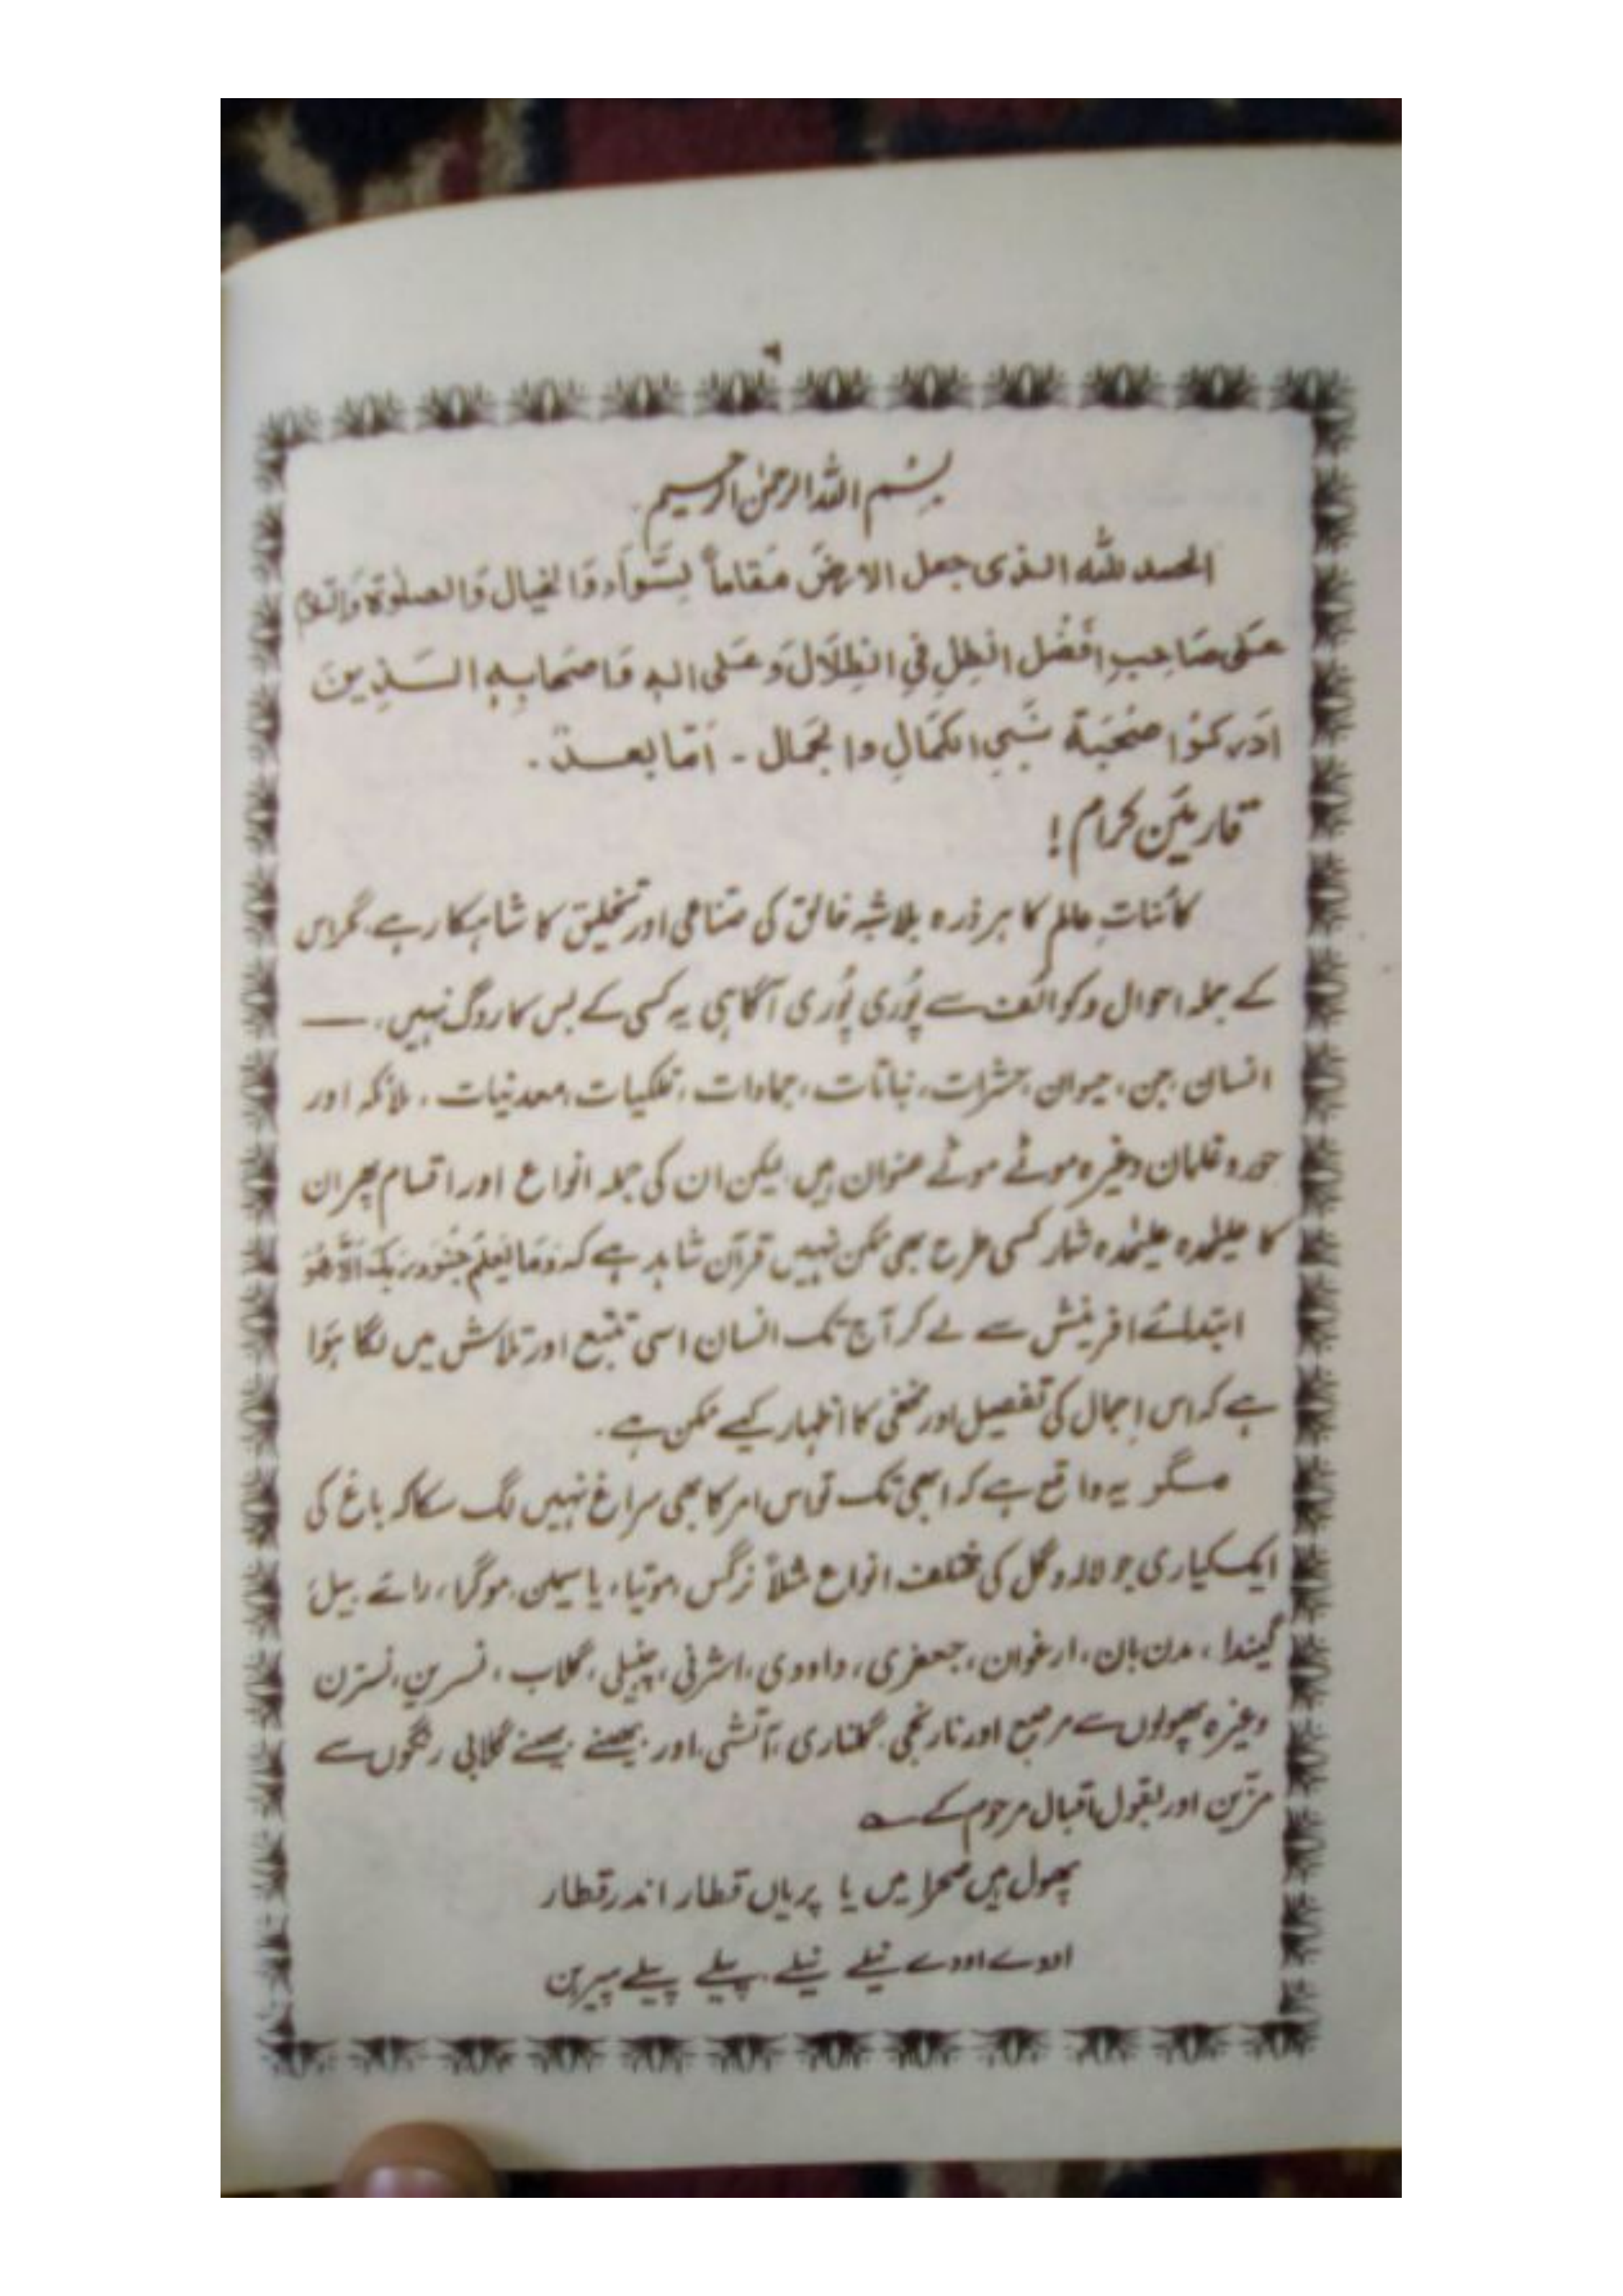 ۹
بِسْمِ اللہ الرحمٰن الرحیم
الحمد للہ الذی جعل الارضَ مَقاماً لِسَّوَادِ وَالخیال وَالصلٰوۃ وَالسّلام
عَلٰی صَاحِبِ اَفْضُل الظِلِ فِی الظِلَالَ وَعَلٰی الہٖ وَاصحَابِہٖ السَذِینَ
اَدَرکُوْا صُحْبَۃ نَبِیِ الکَمَالِ والجَمال ۔ اَمّا بعد ۔
قارئین کرام !
کائناتِ عالم کا ہر ذرہ بلا شبہ خالق کی صناعی اور تخلیق کا شاہکار ہے، مگر اس
کے جملہ احوال و کوائف سے پُوری پُوری آگاہی یہ کسی کے بس کا روگ نہیں۔ ——
انسان، جن، حیوان، حشرات، نباتات، جمادات، فلکیات، معدنیات، ملائکہ اور
حور و غلمان وغیرہ موٹے موٹے عنوان ہیں لیکن ان کی جملہ انواع اور اقسام پھر ان
کا علیٰحدہ علیٰحدہ شمار کسی طرح بھی ممکن نہیں قرآن شاہد ہے کہ وَمَا یَعْلَمُ جُنُودَ رَبِّکَ اِلَّا ھُوَ
ابتدائے افرینش سے لے کر آج تک انسان اسی تتبع اور تلاش میں لگا ہَوا
ہے کہ اس اِجمال کی تفصیل اور مخفی کا اظہار کیسے ممکن ہے ۔
مگر یہ واقع ہے کہ ابھی تک تو اس امر کا بھی سراغ نہیں لگ سکا کہ باغ کی
ایک کیاری جو لالہ و گل کی مختلف انواع مثلاً نرگس، موتیا، یاسیمن، موگرا، رائے بیل،
گیندا، مدن بان، ارغوان، جعفری، داودی، اشرفی، چنبیلی، گلاب، نسرین، نسترن
وغیرہ پھولوں سے مرصع اور نارنجی گلناری، آتشی، اور بھینے بھینے گلابی رنگوں سے
مزّین اور بقول اقبال مرحوم کے ؎
پھول ہیں صحرا میں یا پریاں قطار اندر قطار
اودے اودے نیلے نیلے، پیلے پیلے پیرہن